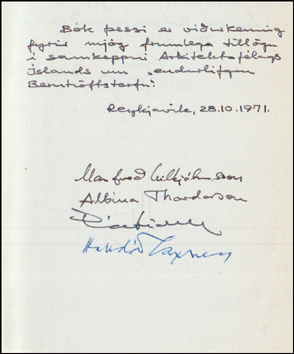 Bók þessi er viðurkenning
fyrir mjög frumlega tillögu
í samkeppni Arkitektafélags
Íslands um „endurlífgun
Bernhöftstorfu".
Reykjavík, 28.10.1971.
Manfreð Vilhjálmsson
Albína Thordarson
Halldór Laxness